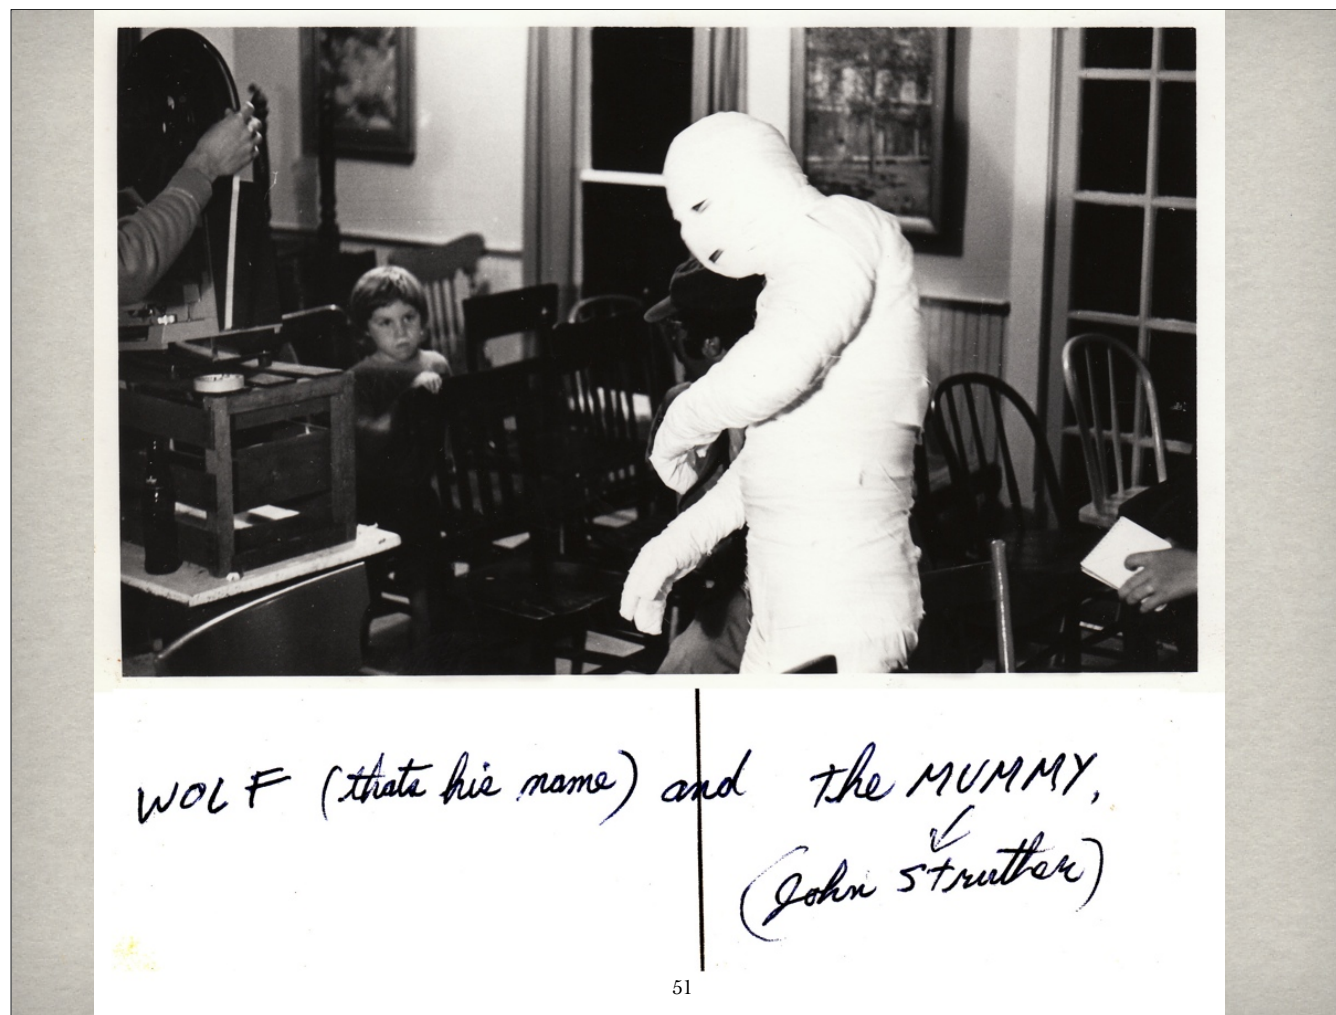 WOLF (thats his name) and the MUMMY,
(John Struther)
51